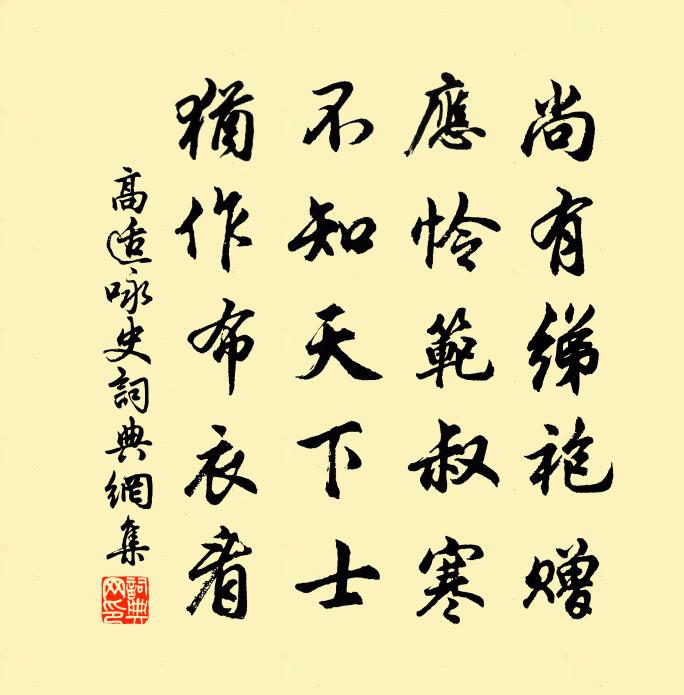 尚有綈袍贈
應怜範叔寒
不知天下士
猶作布衣看
高适咏史詞典網集
詞典網印